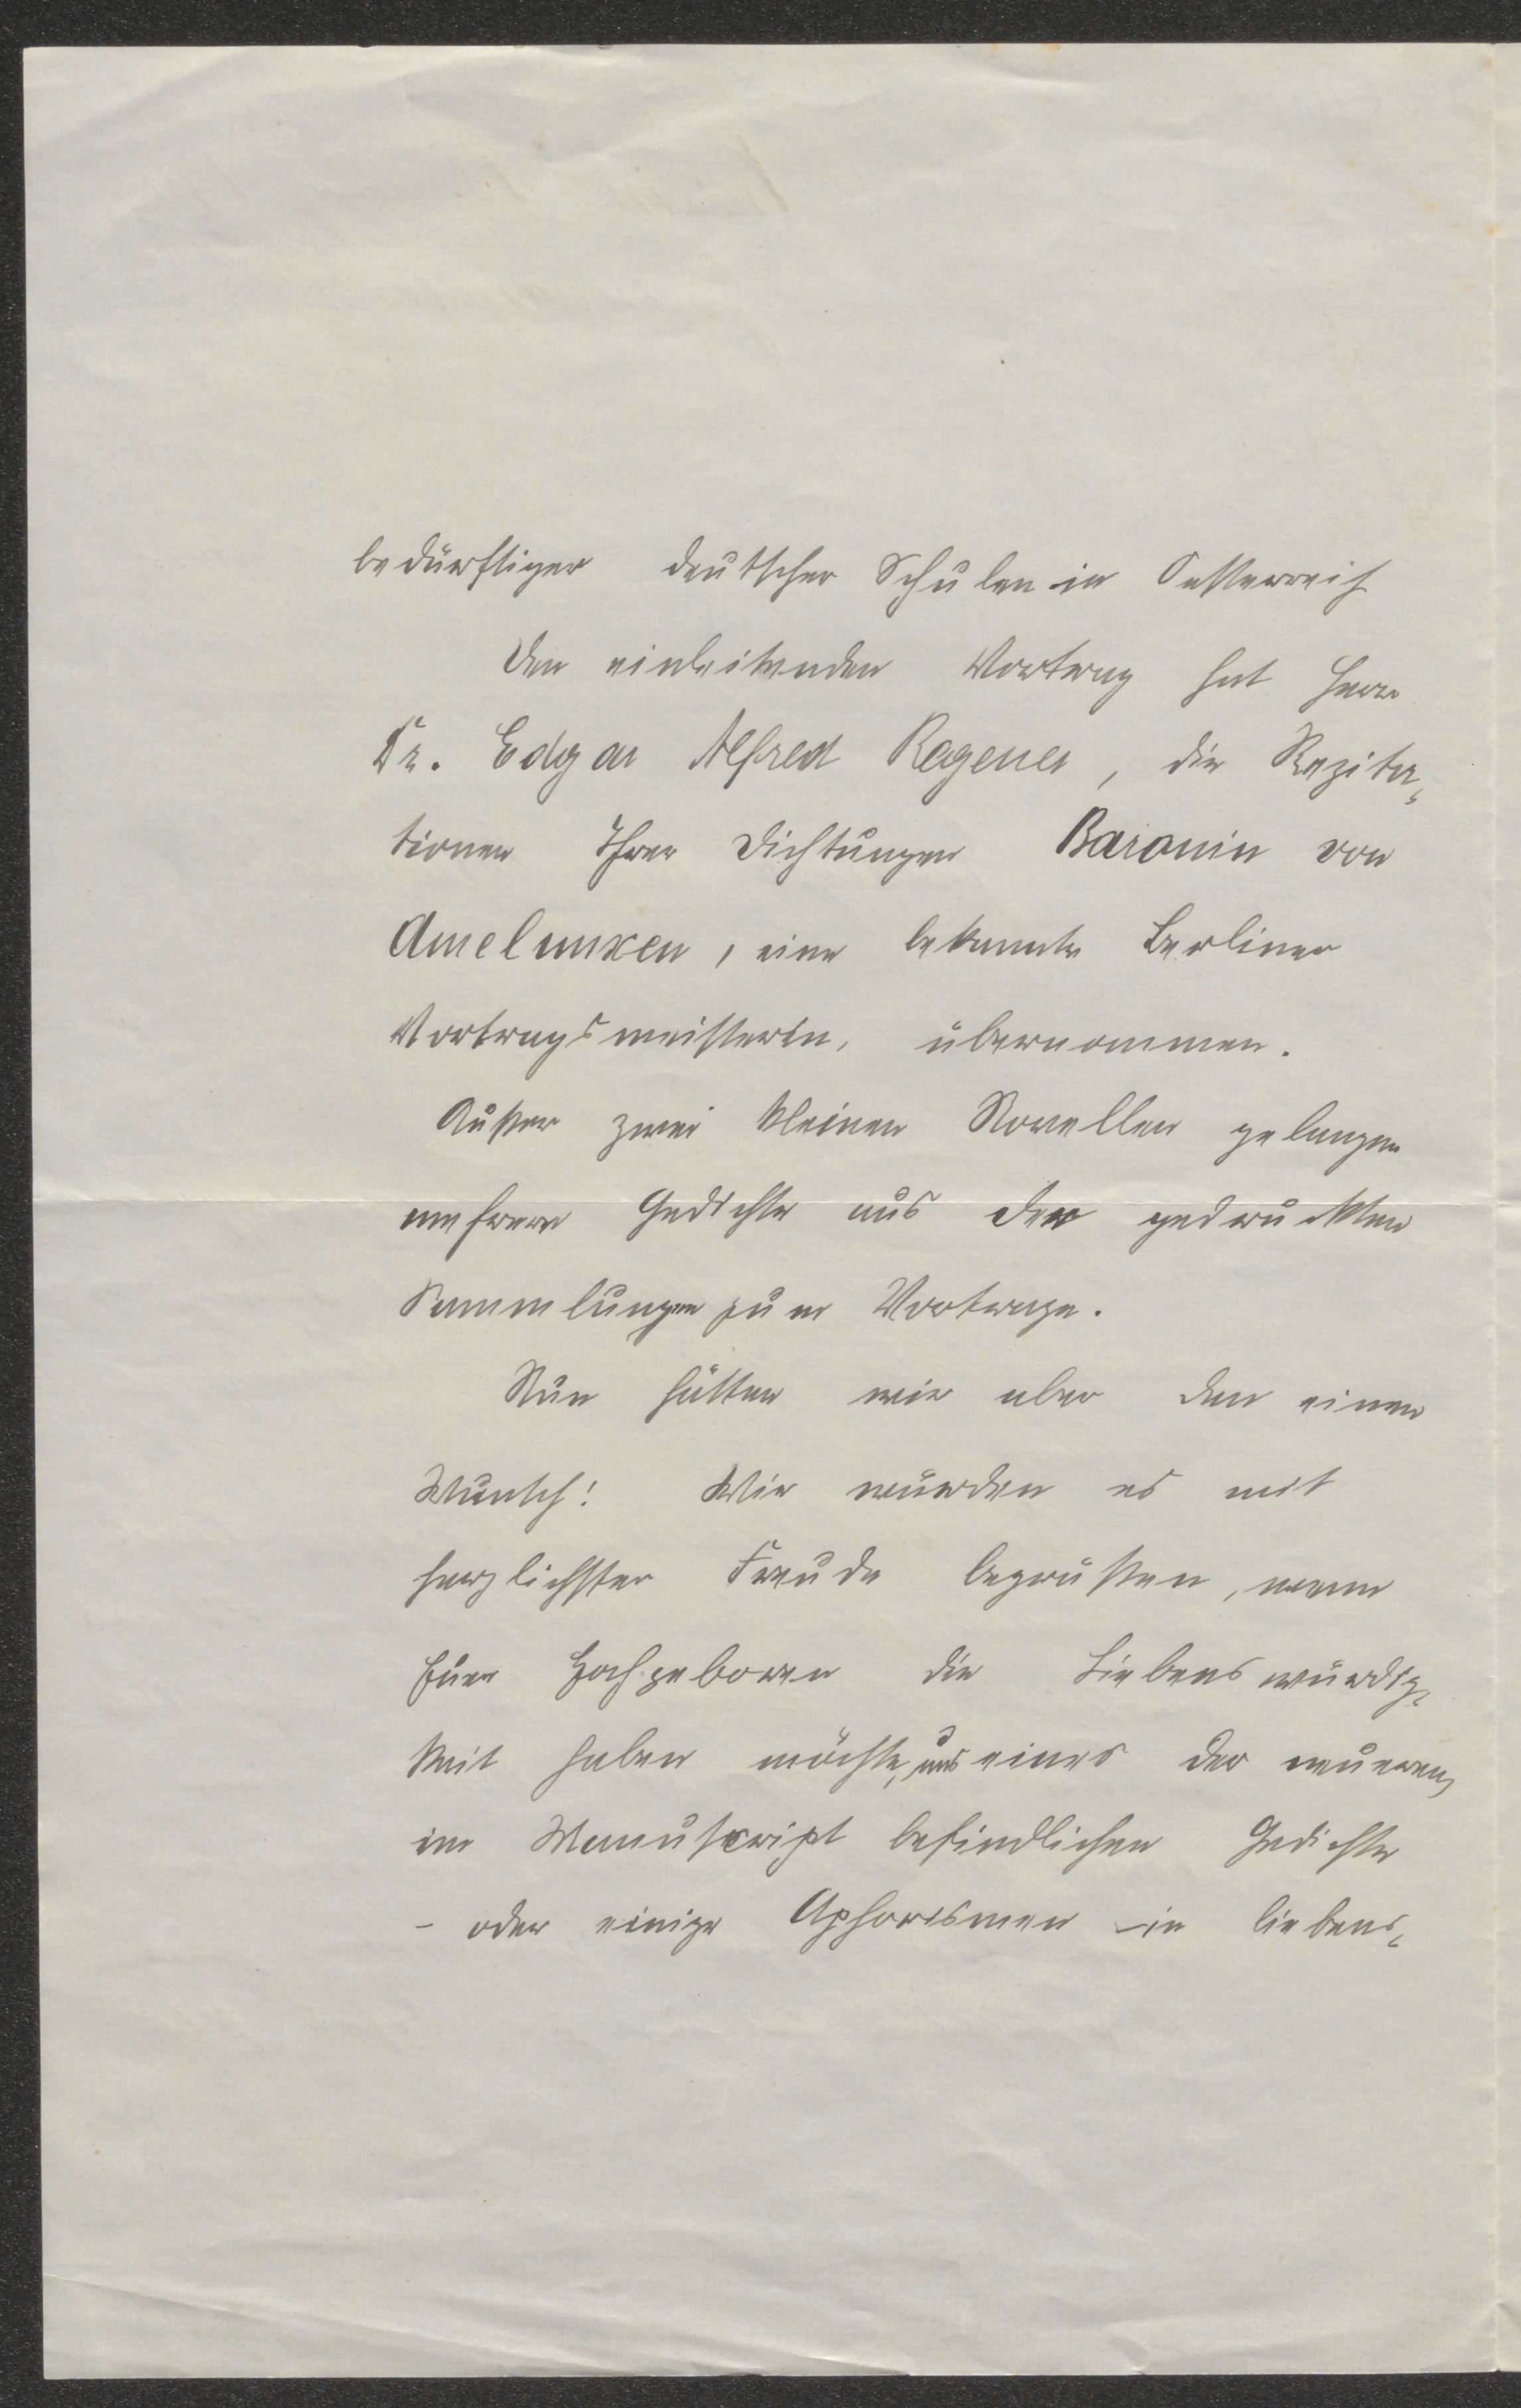 bedürftiger deutscher Schulen in Oesterreich
Den einleitenden Vortrag hat Herr
Dr. Edgar Alfred Regener, die Rezita-
tionen Ihrer Dichtungen Baronin von
Amelunxen, eine bekannte Berliner
Vortragsmeisterin, übernommen.
Außer zwei kleinen Novellen gelangen
mehrere Gedichte aus den gedruckten
Sammlungen zum Vortrage.
Nun hätten wir aber den einen
Wunsch! Wir würden es mit
herzlichster Freude begrüßen, wenn
Euer Hochgeboren die Liebenswürdig-
keit haben möchte, uns eines der neueren,
im Manuskript befindlichen Gedichte
– oder einige Aphorismen – in liebens-